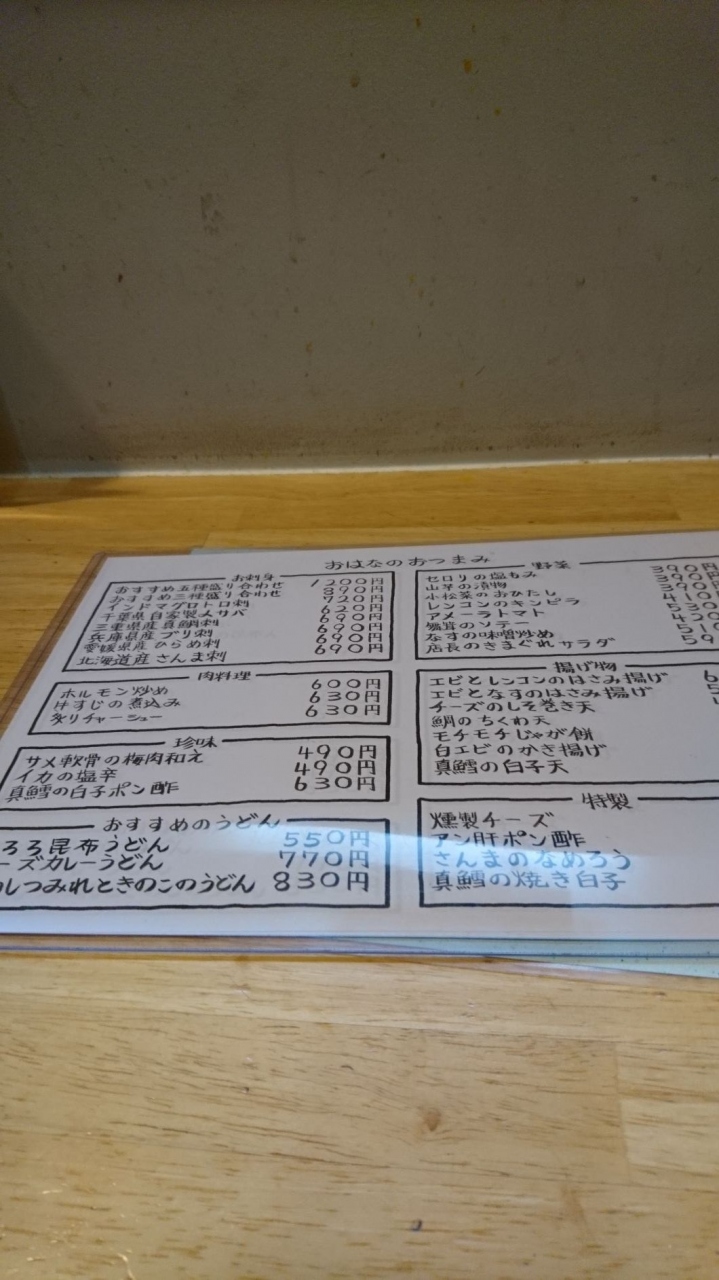 おはなのおつまみ
お刺身
おすすめ五種盛り合わせ 1200円
おすすめ三種盛り合わせ 890円
インドマグロトロ刺 720円
千葉県自家製〆サバ 620円
三重県産真鯛刺 690円
兵庫県産ブリ刺 690円
愛媛県産ひらめ刺 690円
北海道産さんま刺 690円
肉料理
ホルモン炒め 600円
牛すじの煮込み 630円
炙りチャーシュー 630円
珍味
サメ軟骨の梅肉和え 490円
イカの塩辛 490円
真鱈の白子ポン酢 630円
おすすめのうどん
ろろ昆布うどん 550円
ーズカレーうどん 770円
しつみれときのこのうどん 830円
野菜
セロリの塩もみ 390円
山芋の漬物 390
小松菜のおひたし 390
レンコンのキンピラ 410
アメーラトマト 530
のソテー 420
なすの味噌炒め
店長のきまぐれサラダ
揚げ物
エビとレンコンのはさみ揚げ
エビとなすのはさみ揚げ
チーズのしそ巻き天
鯛のちくわ天
モチモチじゃが餅
白エビのかき揚げ
真鱈の白子天
特製
燻製チーズ
アン肝ポン酢
さんまのなめろう
真鱈の焼き白子